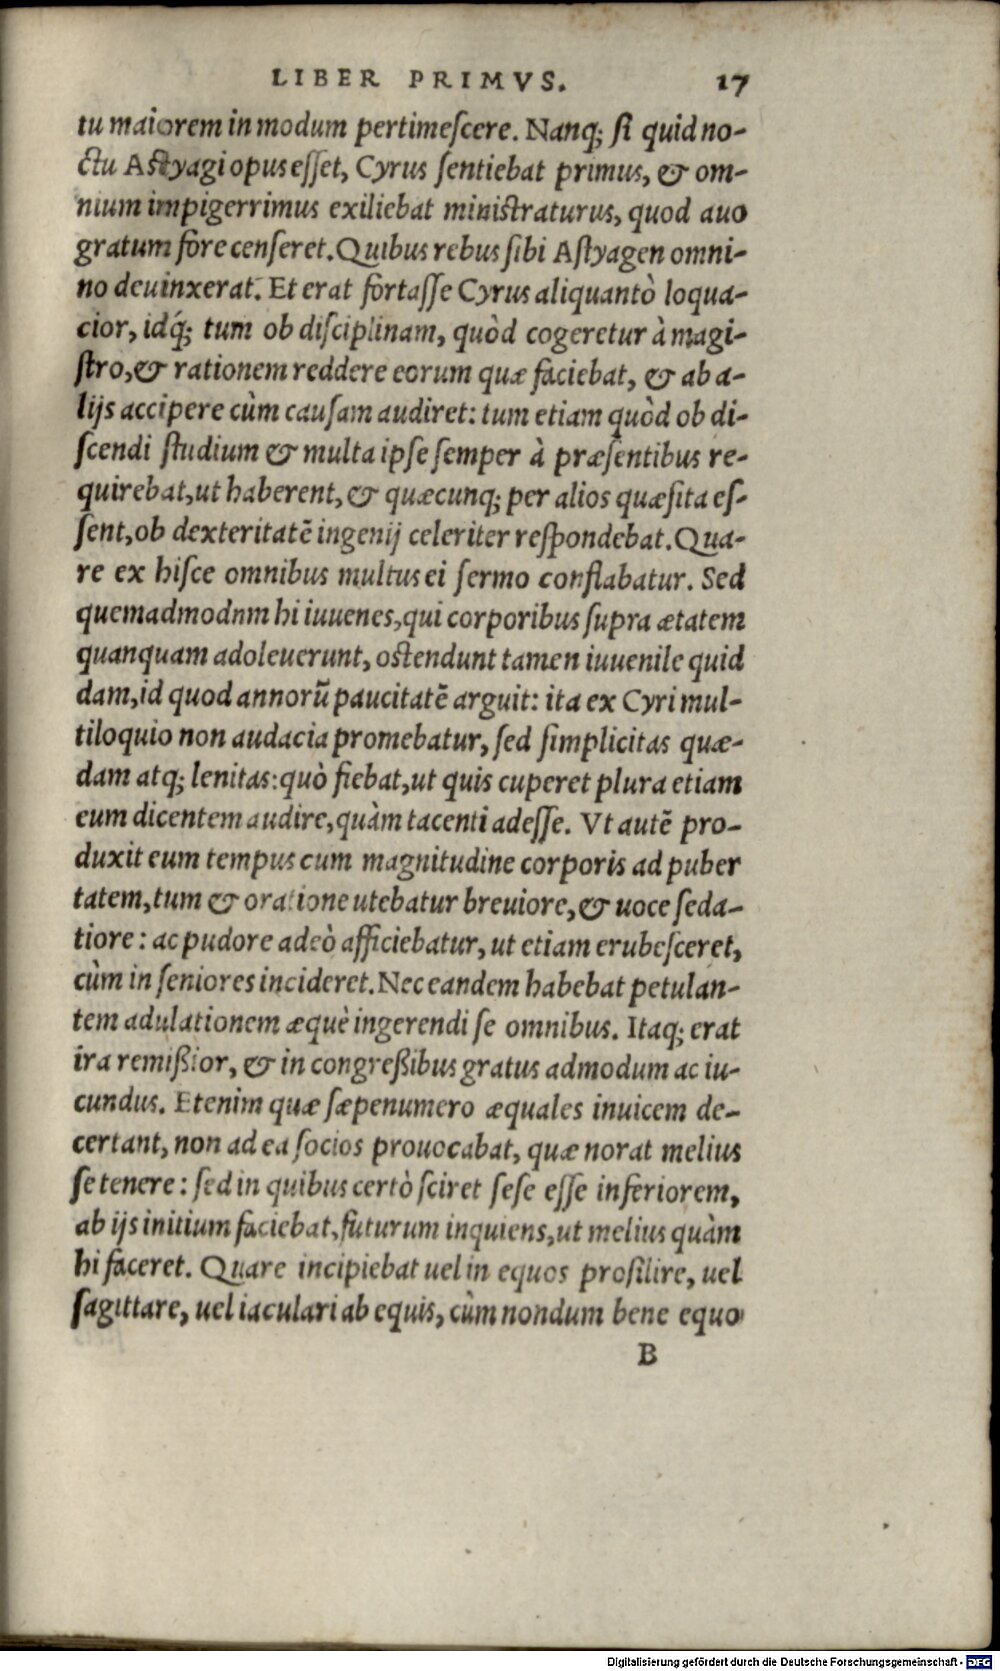 LIBER PRIMVS. 17
tu maiorem in modum pertimeſcere. Nanq; ſi quid no-
ctu Aſtyagi opus eſſet, Cyrus ſentiebat primus, & om-
nium impigerrimus exiliebat miniſtraturus, quod auo
gratum fore cenſeret. Quibus rebus ſibi Aſtyagen omni-
no deuinxerat. Et erat fortaſſe Cyrus aliquantò loqua-
cior, idq́; tum ob diſciplinam, quòd cogeretur à magi-
ſtro, & rationem reddere eorum quæ faciebat, & ab a-
lijs accipere cùm cauſam audiret: tum etiam quòd ob di-
ſcendi ſtudium & multa ipſe ſemper à præſentibus re-
quirebat, ut haberent, & quæcunq; per alios quæſita eſ-
ſent, ob dexteritatē ingenij celeriter reſpondebat. Qua-
re ex hiſce omnibus multus ei ſermo conflabatur. Sed
quemadmodnm hi iuuenes, qui corporibus ſupra ætatem
quanquam adoleuerunt, oſtendunt tamen iuuenile quid
dam, id quod annorū paucitatē arguit: ita ex Cyri mul-
tiloquio non audacia promebatur, ſed ſimplicitas quæ-
dam atq; lenitas: quò fiebat, ut quis cuperet plura etiam
eum dicentem audire, quàm tacenti adeſſe. Vt autē pro-
duxit eum tempus cum magnitudine corporis ad puber
tatem, tum & oratione utebatur breuiore, & uoce ſeda-
tiore: ac pudore adeò afficiebatur, ut etiam erubeſceret,
cùm in ſeniores incideret. Nec eandem habebat petulan-
tem adulationem æquè ingerendi ſe omnibus. Itaq; erat
ira remißior, & in congreßibus gratus admodum ac iu-
cundus. Etenim quæ ſæpenumero æquales inuicem de-
certant, non ad ea ſocios prouocabat, quæ norat melius
ſe tenere: ſed in quibus certò ſciret ſeſe eſſe inferiorem,
ab ijs initium faciebat, futurum inquiens, ut melius quàm
hi faceret. Quare incipiebat uel in equos proſilire, uel
ſagittare, uel iaculari ab equis, cùm nondum bene equo
B
Digitalisierung gefördert durch die Deutsche Forschungsgemeinschaft - DFG